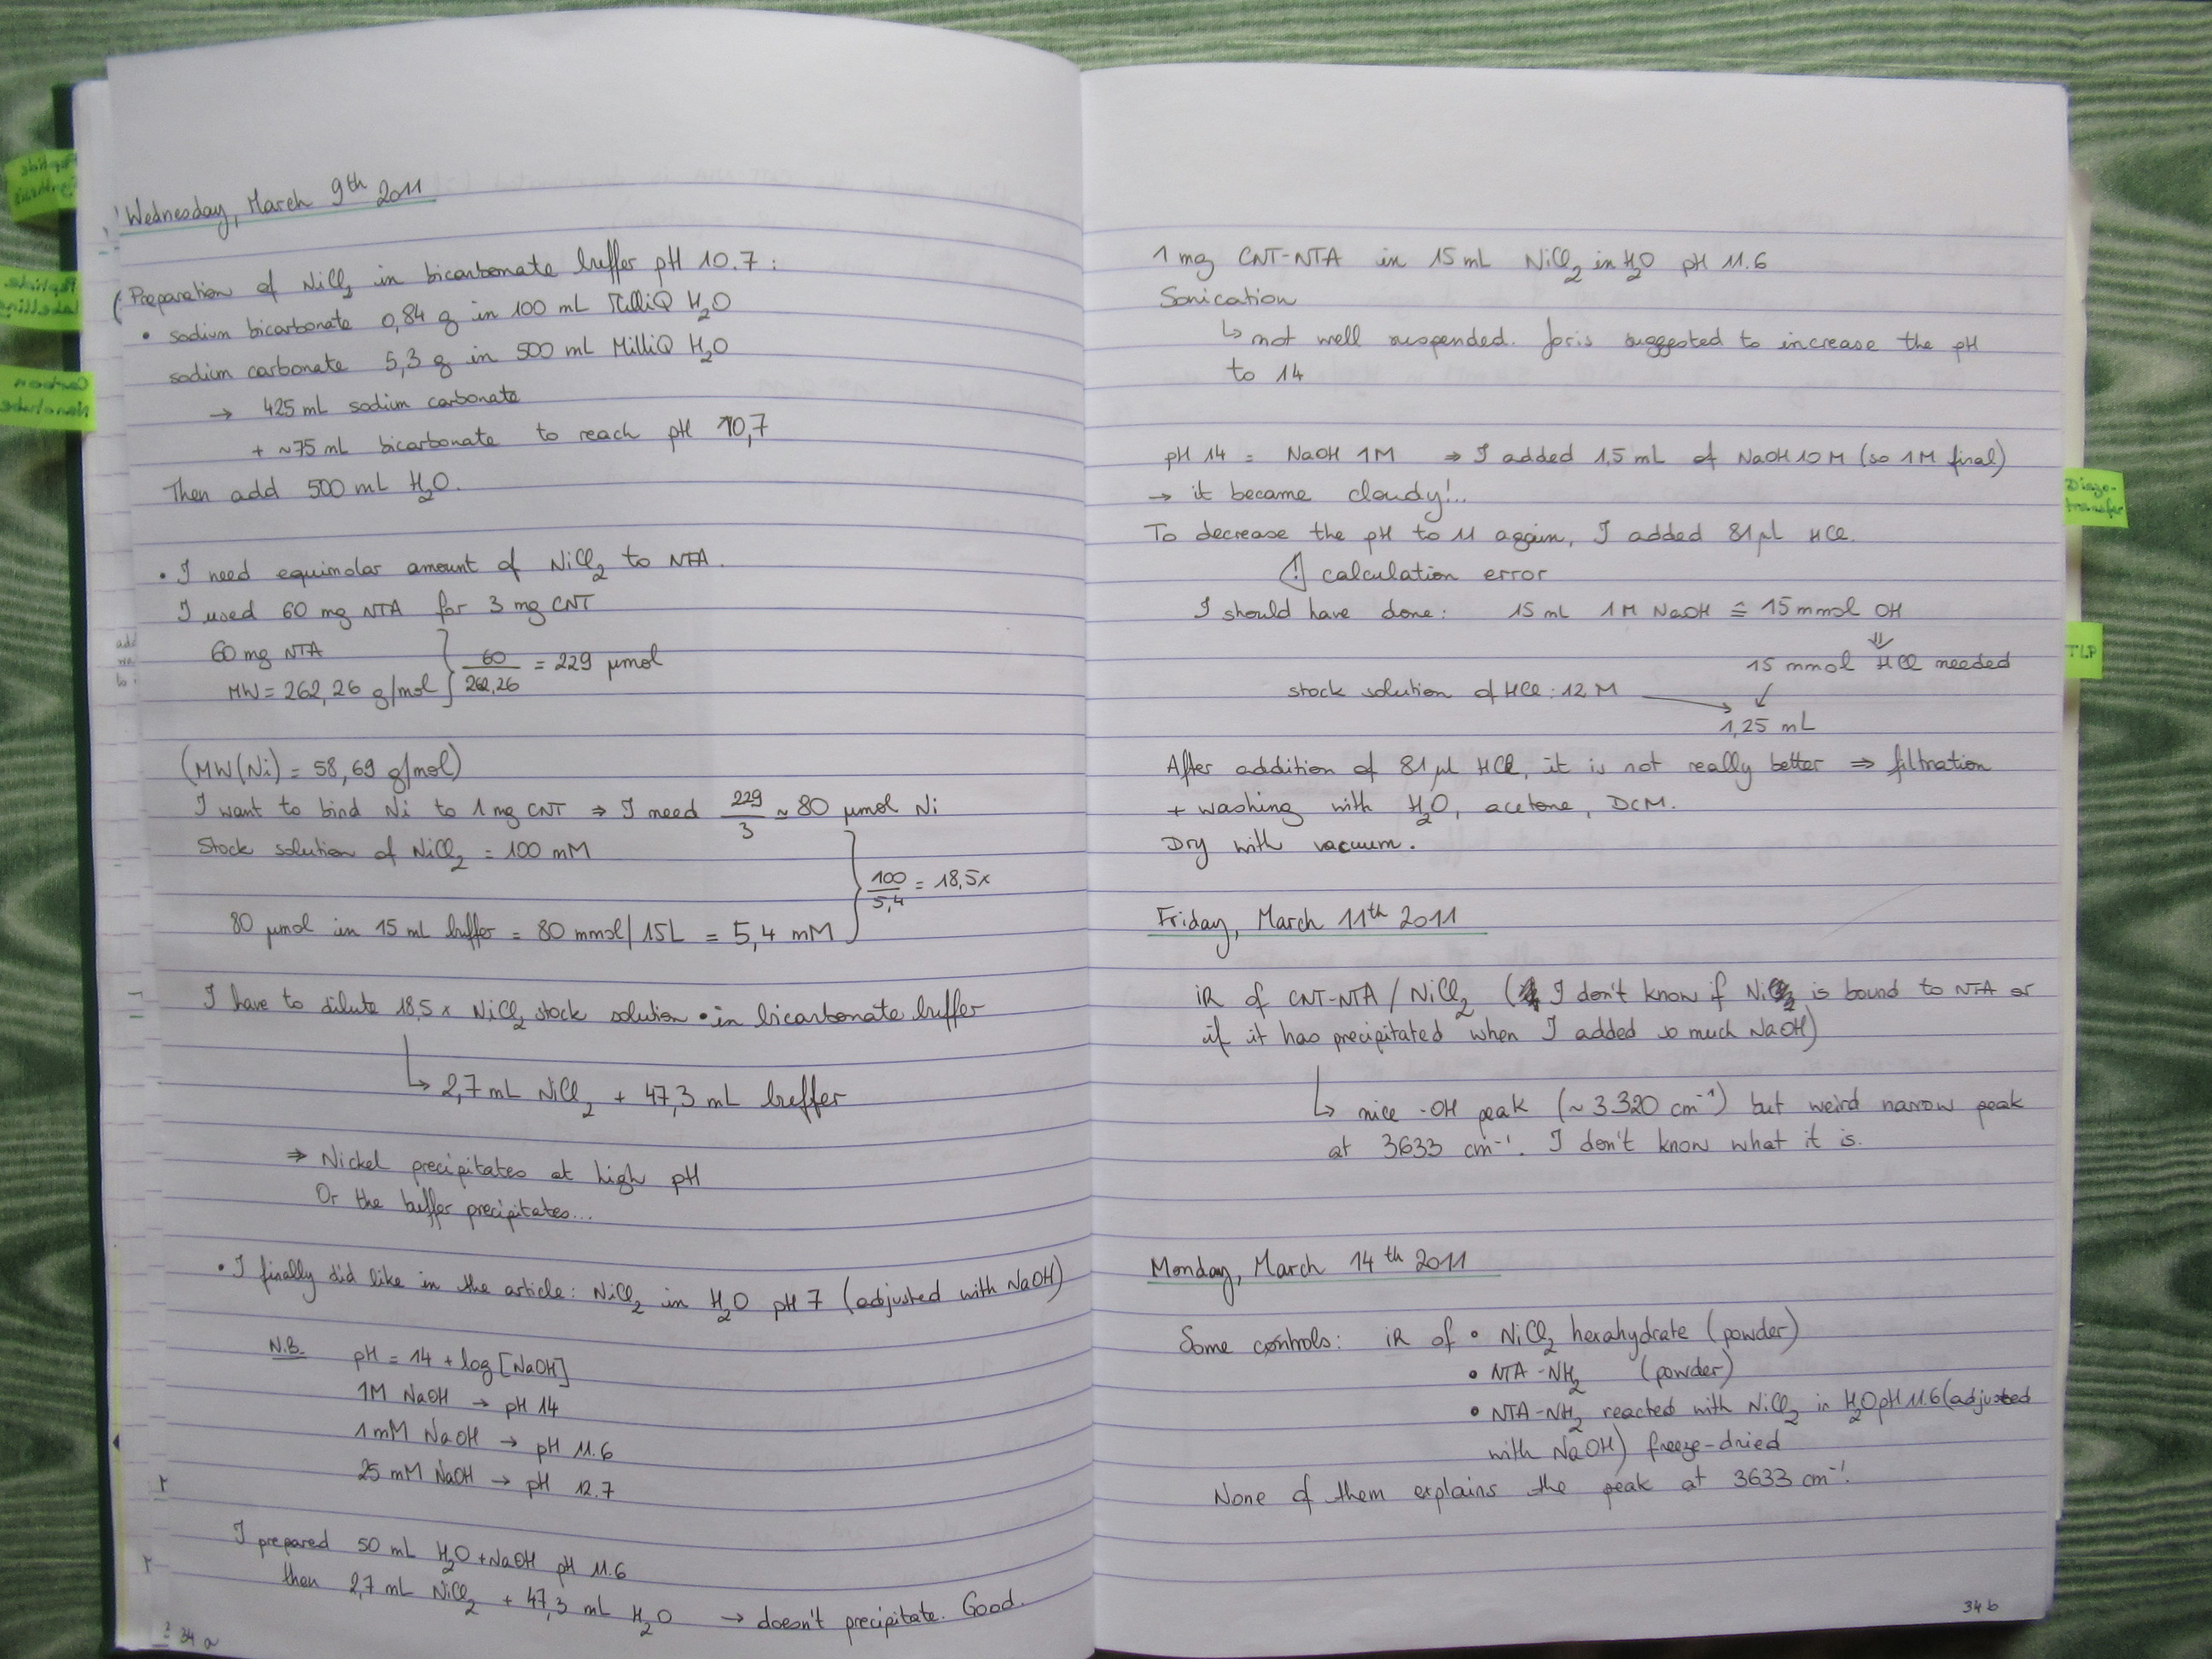 Wednesday, March 9th 2011
Preparation of NiCl2 in bicarbonate buffer pH 10.7 :
• sodium bicarbonate 0,84 g in 100 mL MilliQ H2O
sodium carbonate 5,3 g in 500 mL MilliQ H2O
→ 425 mL sodium carbonate
+ ~75 mL bicarbonate to reach pH 10,7
Then add 500 mL H2O.
• I need equimolar amount of NiCl2 to NTA.
I used 60 mg NTA for 3 mg CNT
60 mg NTA
MW = 262,26 g/mol } 60/262,26 = 229 µmol
(MW(Ni) = 58,69 g/mol)
I want to bind Ni to 1 mg CNT ⇒ I need 229/3 ≈ 80 µmol Ni
Stock solution of NiCl2 = 100 mM
} 100/5,4 = 18,5x
80 µmol in 15 mL buffer = 80 mmol/15L = 5,4 mM
I have to dilute 18,5 x NiCl2 stock solution • in bicarbonate buffer
↳ 2,7 mL NiCl2 + 47,3 mL buffer
⇒ Nickel precipitates at high pH
Or the buffer precipitates...
• I finally did like in the article: NiCl2 in H2O pH 7 (adjusted with NaOH)
N.B. pH = 14 + log [NaOH]
1M NaOH → pH 14
1 mM NaOH → pH 11.6
25 mM NaOH → pH 12.7
I prepared 50 mL H2O + NaOH pH 11.6
then 2,7 mL NiCl2 + 47,3 mL H2O → doesn't precipitate. Good.
34 a
1 mg CNT-NTA in 15 mL NiCl2 in H2O pH 11.6
Sonication
↳ not well suspended. Joris suggested to increase the pH
to 14
pH 14 = NaOH 1M ⇒ I added 1,5 mL of NaOH 10 M (so 1M final)
→ it became cloudy!..
To decrease the pH to 11 again, I added 81 µL HCl.
⚠ calculation error
I should have done: 15 mL 1M NaOH ≙ 15 mmol OH
⇓
15 mmol HCl needed
stock solution of HCl : 12 M → ↙
1,25 mL
After addition of 81 µl HCl, it is not really better ⇒ filtration
+ washing with H2O, acetone, DCM.
Dry with vacuum.
Friday, March 11th 2011
iR of CNT-NTA / NiCl2 ( I don't know if Ni is bound to NTA or
if it has precipitated when I added so much NaOH)
↳ nice -OH peak (~ 3320 cm-1) but weird narrow peak
at 3633 cm-1. I don't know what it is.
Monday, March 14th 2011
Some controls: iR of • NiCl2 hexahydrate (powder)
• NTA-NH2 (powder)
• NTA-NH2 reacted with NiCl2 in H2O pH 11.6 (adjusted
with NaOH) freeze-dried
None of them explains the peak at 3633 cm-1.
34 b
Peptide
Synthesis
Peptide
Labelling
Carbon
Nanotube
Diazo-
transfer
TLP